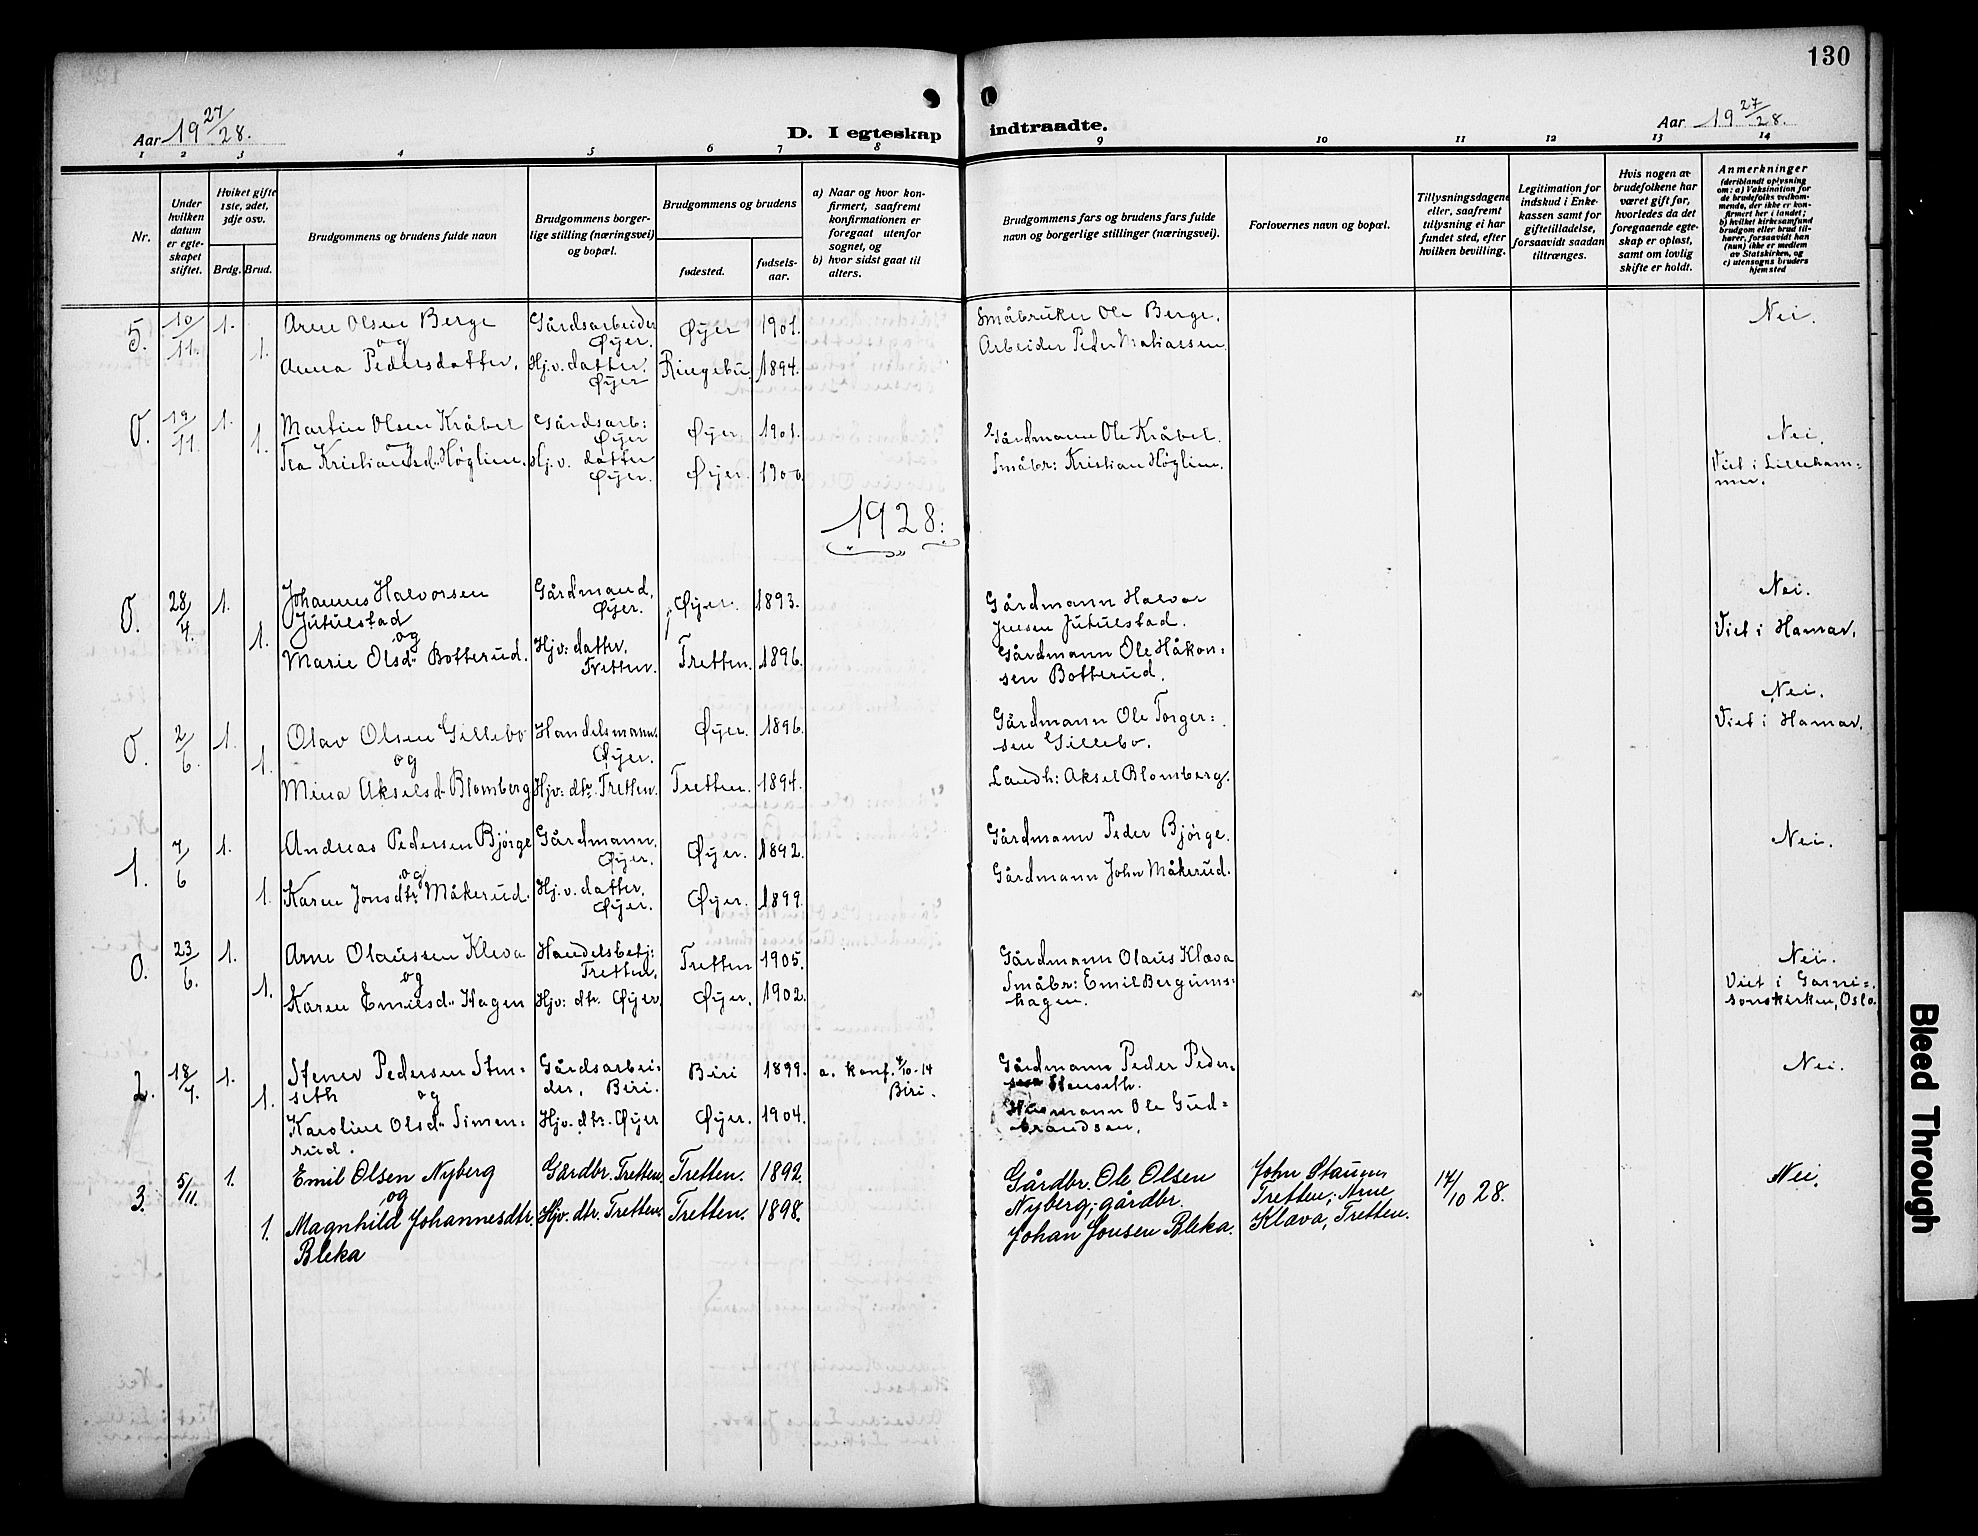 130
Aar 19 27/28.
D. I egteskap indtraadte.
Aar 19 27/28.
1 2 3 4 5 6 7 8 9 10 11 12 13 14
Nr.
Under hvilken datum er egteskapet stiftet.
Hvilket gifte 1ste, 2det, 3dje osv.
Brdg. Brud.
Brudgommens og brudens fulde navn
Brudgommens borgerlige stilling (næringsvei) og bopæl.
Brudgommens og brudens
fødested.
fødselsaar.
a) Naar og hvor konfirmert, saafremt konfirmationen er foregaat utenfor sognet, og
b) hvor sidst gaat til alters.
Brudgommens fars og brudens fars fulde navn og borgerlige stillinger (næringsvei).
Forlovernes navn og bopæl.
Tillysningsdagene eller, saafremt tillysning ei har fundet sted, efter hvilken bevilling.
Legitimation for indskud i Enkekassen samt for giftetilladelse, forsaavidt saadan tiltrænges.
Hvis nogen av brudefolkene har været gift før, hvorledes da det foregaaende egteskap er opløst, samt om lovlig skifte er holdt.
Anmerkninger
(deriblandt oplysning om: a) Vaksination for de brudefolks vedkommende, der ikke er konfirmert her i landet; b) hvilket kirkesamfund brudgom eller brud tilhører, forsaavidt han (hun) ikke er medlem av Statskirken, og c) utensogns bruders hjemsted
5. 10/11. 1. Arne Olsen Berge Gårdsarbeider Øyer. Øyer 1901. Småbruker Ole Berge. Nei.
og
1. Anna Pedersdatter. Hj.v. datter. Øyer Ringebu. 1894. Arbeider Peder Mathiassen.
0. 19/11. 1. Martin Olsen Kråbel Gårdsarb: Øyer Øyer. 1901. Gårdmann Ole Kråbel. Nei.
og
1. Tea Kristiansd. Høglien. Hj.v. datter Øyer. Øyer. 1900 Småbr: Kristian Høglien. Viet i Lilleham=
mer.
1928:
0. 28/4. 1. Johannes Halvorsen Gårdmand, Øyer. Øyer. 1893. Gårdmann Halvor Nei.
Jutulstad Julsen Jutulstad. Viet i Hamar.
og
1. Marie Olsd. Botterud. Hjv: datter. Tretten. Tretten. 1896. Gårdmann Ole Håkon=
sen Botterud.
0. 2/6. 1. Olav Olsen Gillebo Handelsmann. Øyer. Øyer. 1896. Gårdmann Ole Torger= Nei.
sen Gillebo. Viet i Hamar.
og
1. Mina Akselsd. Blomberg Hjv: dtr. Tretten. Tretten. 1894. Landh: Aksel Blomberg.
1. 7/6 1. Andreas Pedersen Bjørge Gårdmann. Øyer. Øyer. 1892. Gårdmann Peder Bjørge. Nei.
og
1. Karen Jonsdtr. Måkerud. Hj.v. datter. Øyer. Øyer. 1899. Gårdmann John Måkerud.
0. 23/6. 1. Arne Olaussen Kleva Handelsbetj: Tretten. Tretten 1905. Gårdmann Olaus Klæva Nei.
og
1. Karen Emilsd. Hagen Hjv: dtr. Øyer. Øyer. 1902. Småbr: Emil Bergums= Viet i Garni=
hagen. sonskirken, Oslo.
2. 18/7. 1. Stener Pedersen Sten= Gårdsarbei= Biri 1899. a. konf. 4/10-14 Gårdmann Peder Peder= Nei.
seth der, Biri. Biri. sen Stenseth.
og
1. Karoline Olsd. Simen= Hjv. dtr. Øyer Øyer. 1904. Ole Gud=
rud. brandsen.
3. 5/11. 1. Emil Olsen Nyberg Gårdbr. Tretten. Tretten. 1892. Gårdbr. Ole Olsen John Staum Nei.
og Nyberg; gårdbr. Tretten; Arne 14/10 28.
1. Magnhild Johannesdtr. Hjv. dtr. Tretten. Tretten. 1898. Johan Jonsen Bleka. Klæva, Tretten.
Bleka
Bleed Through